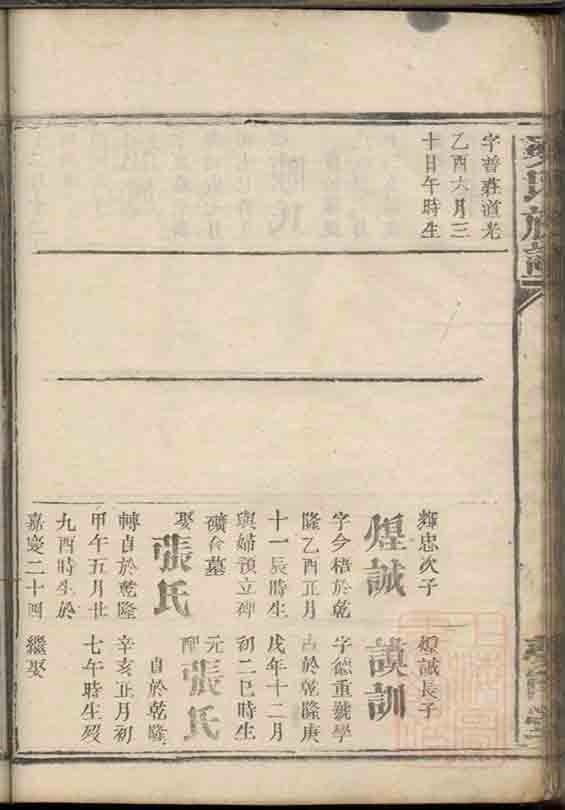 氏族譜
字普莊道光
乙酉六月三
十日午時生
輝忠次子
煌誠
字今梧於乾
隆乙酉正月
十一辰時生
與婦預立碑
礦合墓
娶張氏
轉貞於乾隆
甲午五月廿
九酉時生於
嘉慶二十四
煌誠長子
謨訓
字德重號學
古於乾隆庚
戌年十二月
初二巳時生
元配張氏
貞於乾隆
辛亥正月初
七午時生歿
繼娶